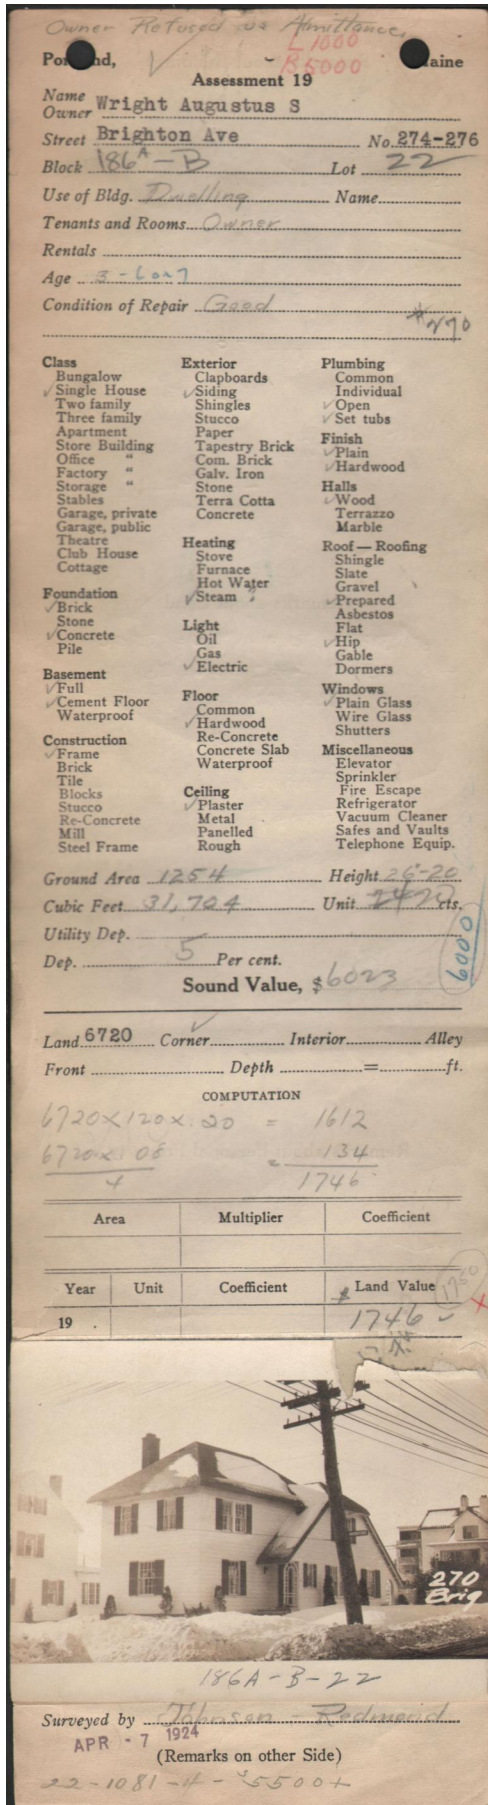 Owner Refused us Admittance
L 1000
B 5000
Portland, Maine
Assessment 19
Name
Owner Wright Augustus S
Street Brighton Ave No. 274-276
Block 186A-B Lot 22
Use of Bldg. Dwelling Name
Tenants and Rooms Owner
Rentals
Age 3-6 or 7
Condition of Repair Good
#270
Class
Bungalow
✓Single House
Two family
Three family
Apartment
Store Building
Office "
Factory "
Storage "
Stables
Garage, private
Garage, public
Theatre
Club House
Cottage
Foundation
✓Brick
Stone
✓Concrete
Pile
Basement
✓Full
✓Cement Floor
Waterproof
Construction
✓Frame
Brick
Tile
Blocks
Stucco
Re-Concrete
Mill
Steel Frame
Exterior
Clapboards
✓Siding
Shingles
Stucco
Paper
Tapestry Brick
Com. Brick
Galv. Iron
Stone
Terra Cotta
Concrete
Heating
Stove
Furnace
Hot Water
✓Steam "
Light
Oil
Gas
✓Electric
Floor
Common
✓Hardwood
Re-Concrete
Concrete Slab
Waterproof
Ceiling
✓Plaster
Metal
Panelled
Rough
Plumbing
Common
Individual
✓Open
✓Set tubs
Finish
✓Plain
✓Hardwood
Halls
✓Wood
Terrazzo
Marble
Roof — Roofing
Shingle
Slate
Gravel
✓Prepared
Asbestos
Flat
✓Hip
Gable
Dormers
Windows
✓Plain Glass
Wire Glass
Shutters
Miscellaneous
Elevator
Sprinkler
Fire Escape
Refrigerator
Vacuum Cleaner
Safes and Vaults
Telephone Equip.
Ground Area 1254 Height 26-20
Cubic Feet 31,704 Unit cts.
Utility Dep.
Dep. 5 Per cent.
6000
Sound Value, $6023
Land 6720 Corner ✓ Interior Alley
Front Depth = ft.
COMPUTATION
6720 x 120 x .20 = 1612
6720 x 08 = 134
4 1746
Area Multiplier Coefficient
Year Unit Coefficient $ Land Value 1750
19 . 1746 ✓ x
270
Brig
186A-B-22
Surveyed by Johnson - Redmond
APR - 7 1924
(Remarks on other Side)
22-1081-4-$5500+